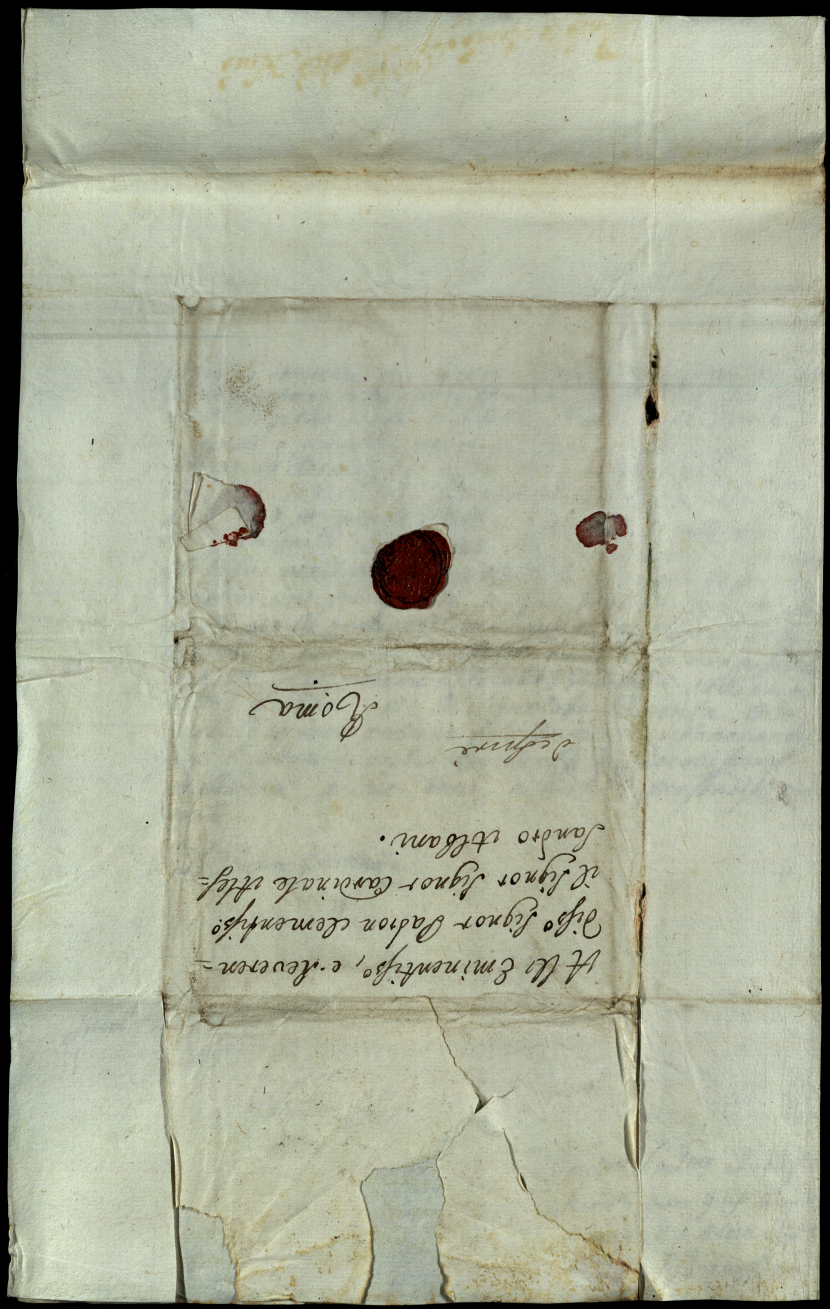 All' Eminentisso, e Reveren=
disso Signor Padron clementisso.
il Signor Signor Cardinale Ales=
sandro Albani.
Roma